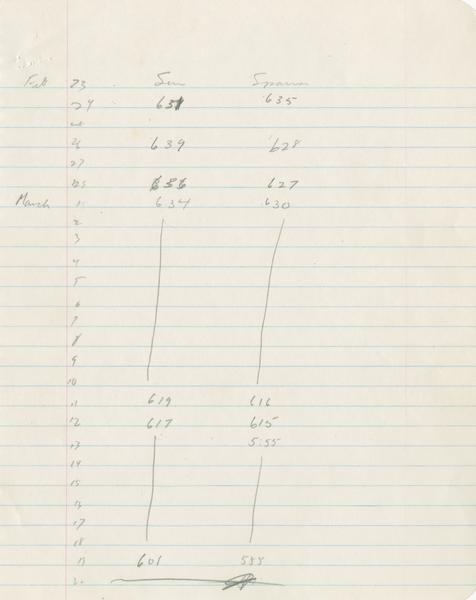 Feb 23 Sun Sparrow
24 651 635
25
26 639 628
27
28 636 627
March 1 634 630
2
3
4
5
6
7
8
9
10
11 619 616
12 617 615
13 5:55
14
15
16
17
18
19 601 555
20